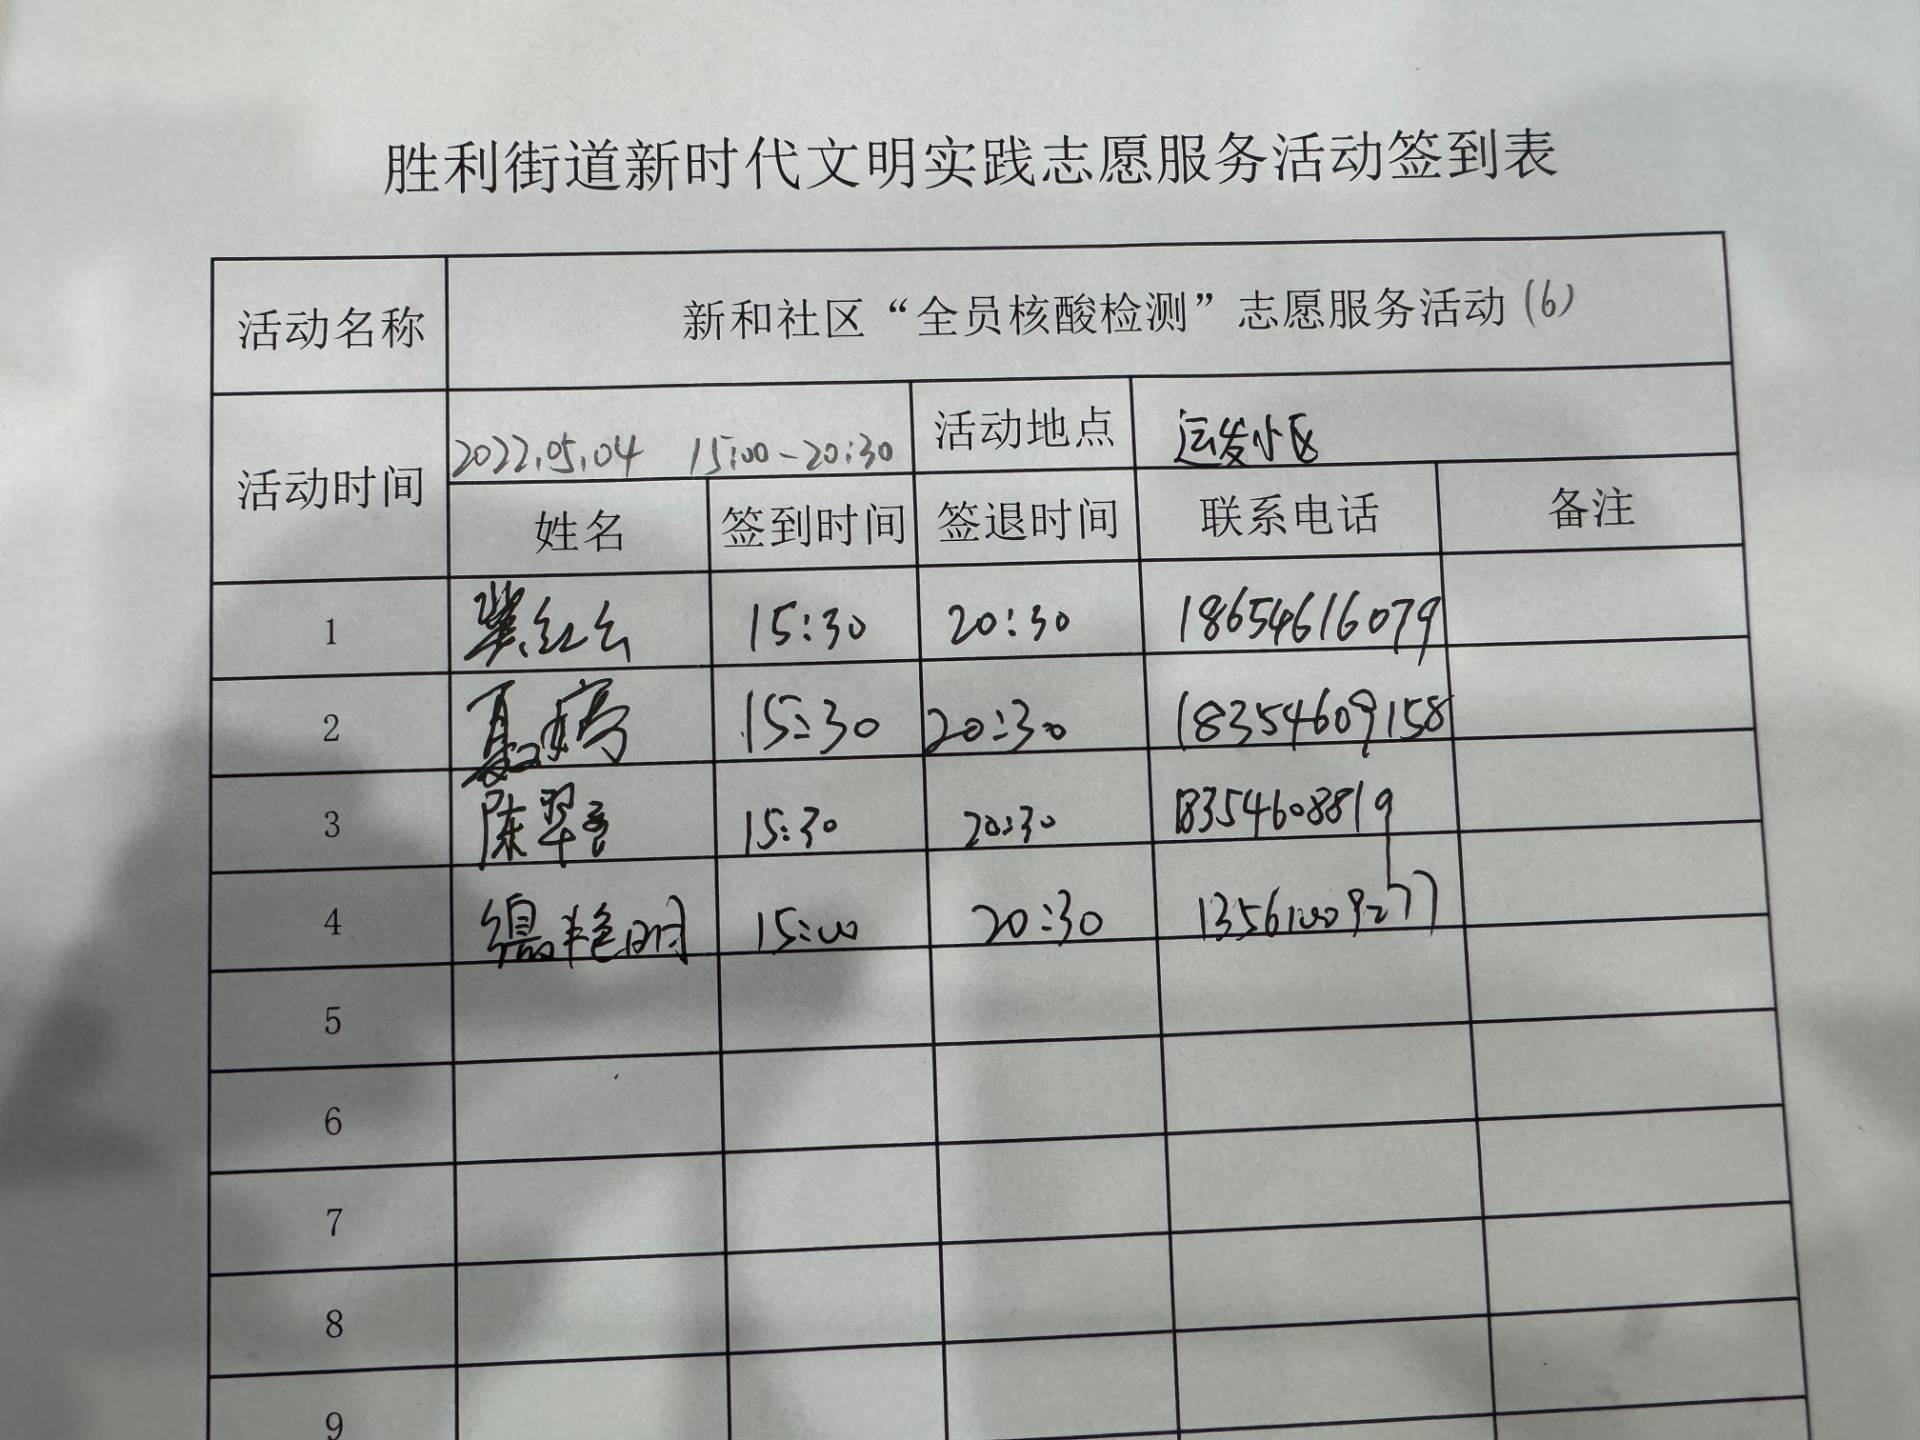 胜利街道新时代文明实践志愿服务活动签到表
活动名称 新和社区“全员核酸检测”志愿服务活动(6)
活动时间 2022.05.04 15:00-20:30 活动地点 运发小区
姓名 签到时间 签退时间 联系电话 备注
1 冀红云 15:30 20:30 18654616079
2 聂婷 15:30 20:30 18354609158
3 陈翠 15:30 20:30 18354608819
4 艳明 15:00 20:30 13561009277
5
6
7
8
9